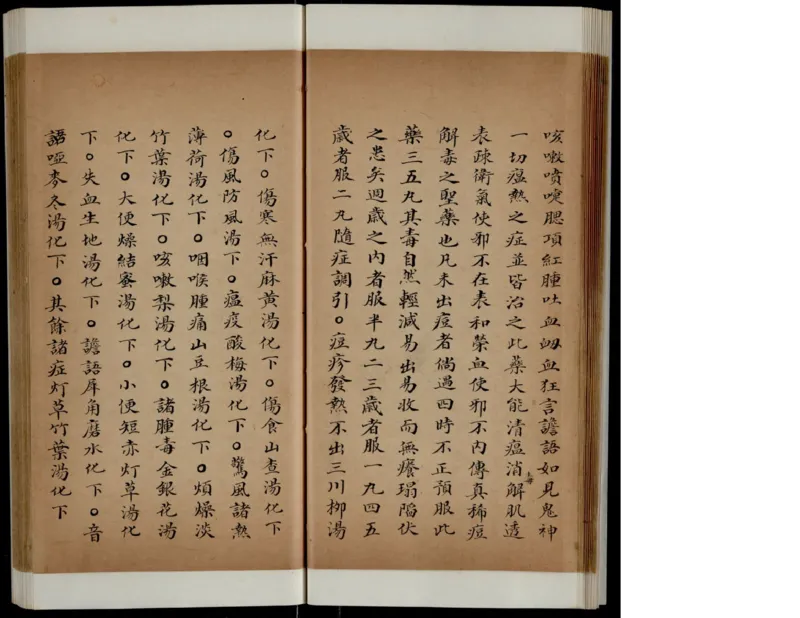 咳嗽噴嚏腮項紅腫吐血衂血狂言譫語如見鬼神
一切瘟熱之症並皆治之此藥大能清瘟消解肌透
表疎衛氣使邪不在表和榮血使邪不內傳真稀痘
解毒之聖藥也凡未出痘者倘過四時不正預服此
藥三五丸其毒自然輕減易出易收而無癢塌陷伏
之患矣週歲之內者服半丸二三歲者服一丸四五
歲者服二丸隨症調引○痘疹發熱不出三川柳湯
化下○傷寒無汗麻黃湯化下○傷食山查湯化下
○傷風防風湯下○瘟疫酸梅湯化下○驚風諸熱
薄荷湯化下○咽喉腫痛山豆根湯化下○煩燥淡
竹葉湯化下○咳嗽梨湯化下○諸腫毒金銀花湯
化下○大便燥結蜜湯化下○小便短赤灯草湯化
下○失血生地湯化下○譫語犀角磨水化下○音
語啞麥冬湯化下○其餘諸症灯草竹葉湯化下